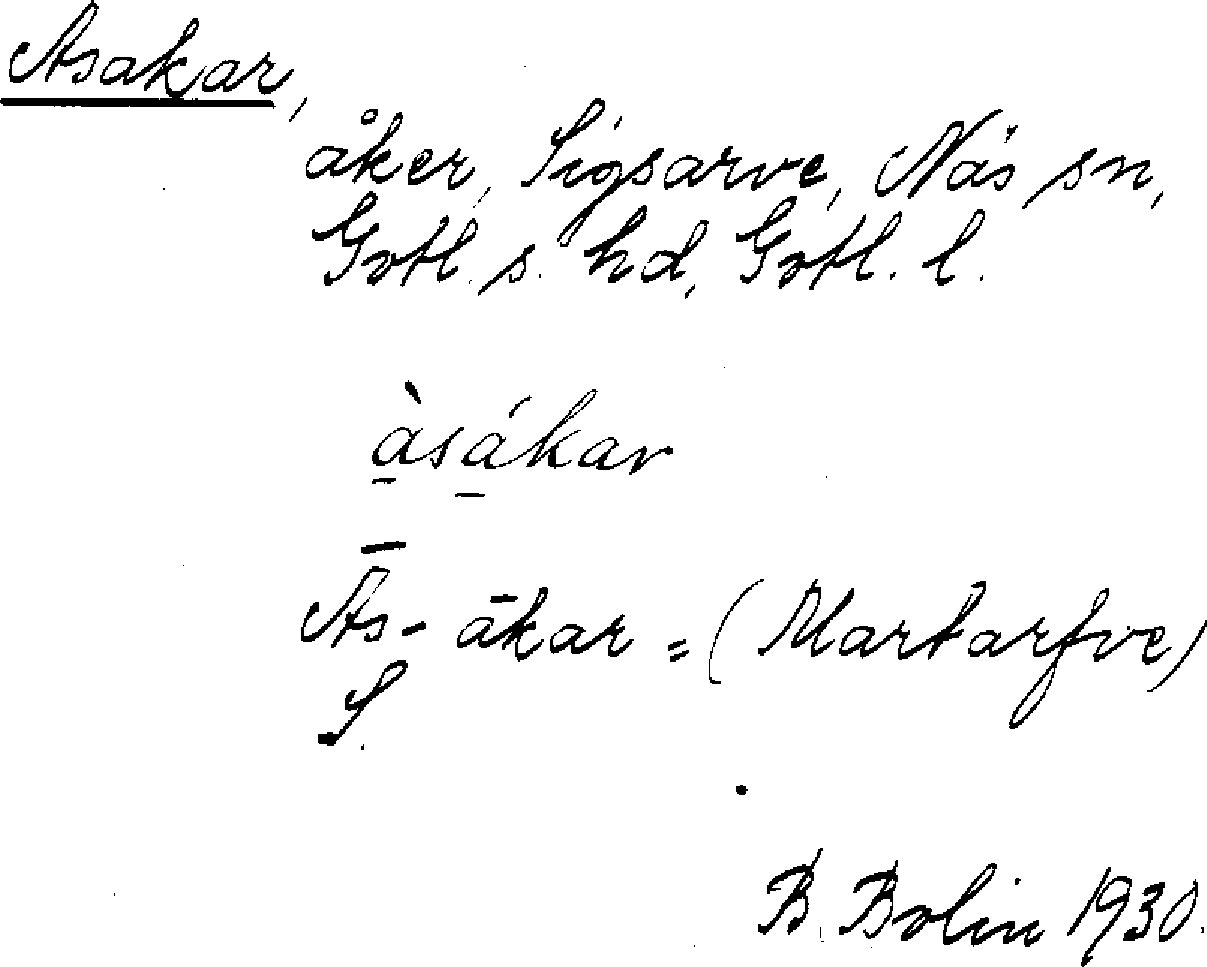 Asakar,
åker, Sigsarve, Näs sn,
Gotl. s. hd, Gotl. l.
à̱sá̱kar
Ās- ākar = (Martarfve)
S.
B. Bolin 1930.